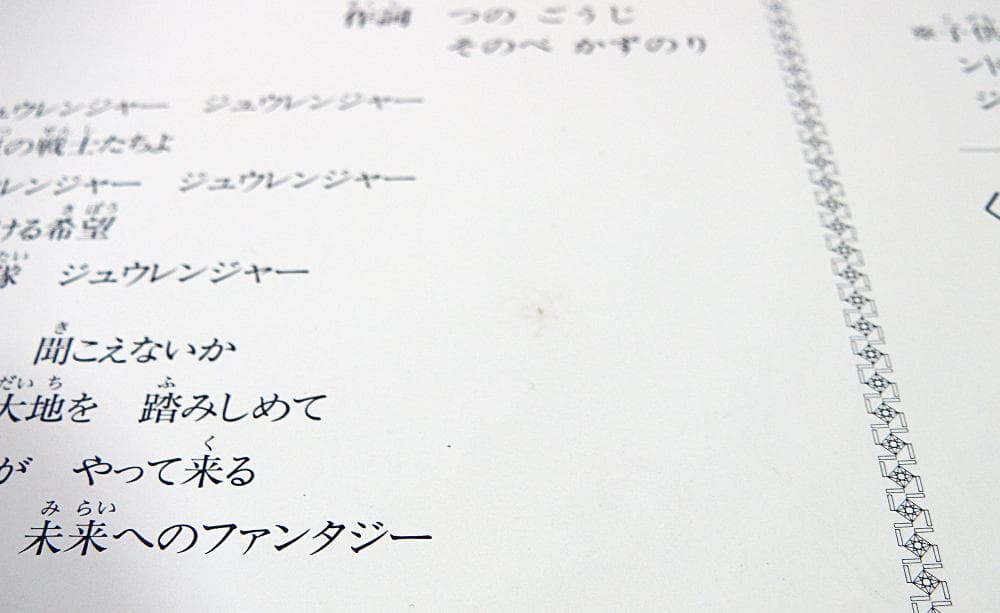 作詞 つの ごうじ
そのべ かずのり
ュウレンジャー ジュウレンジャー
の戦士たちよ
レンジャー ジュウレンジャー
き ぼう
ける希望
たい
隊 ジュウレンジャー
き
聞こえないか
だい ち ふ
大地を 踏みしめて
く
が やって来る
み らい
未来へのファンタジー
※子供
ンド
ジ